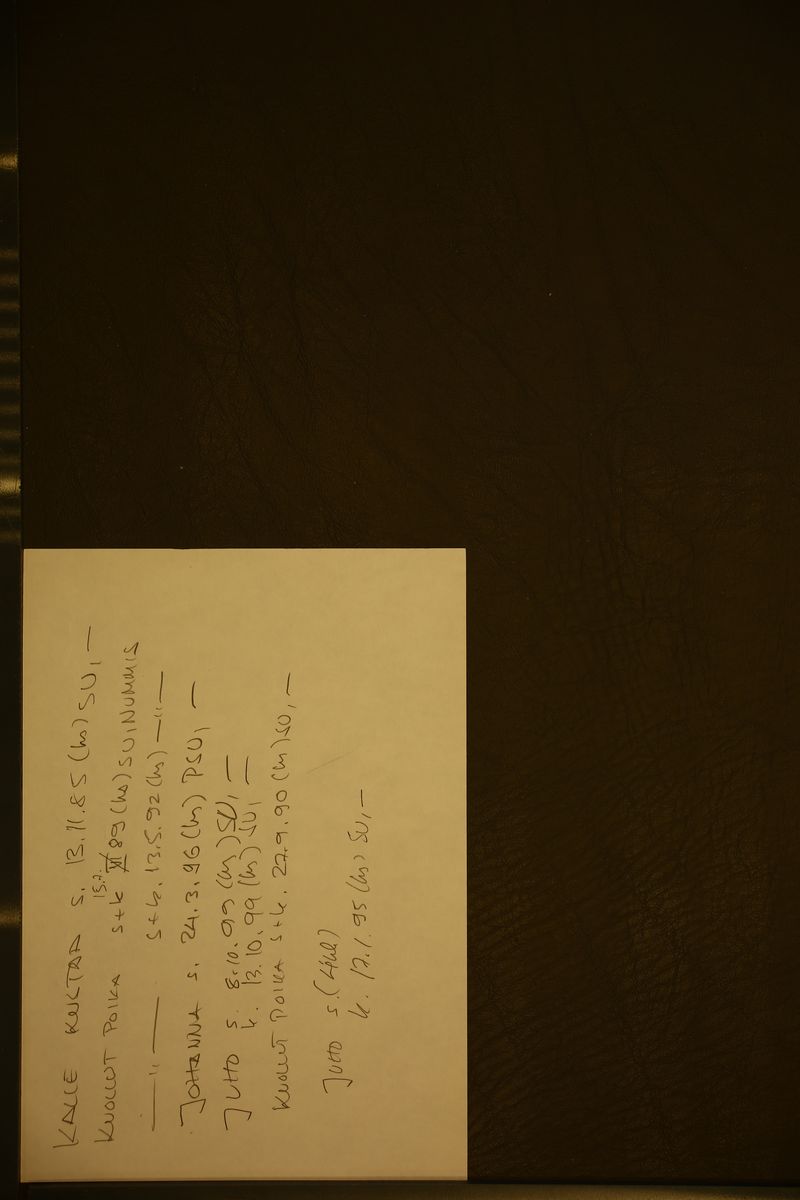 KALLE KUSTAA s. 13.11.85 (hs) SU, —
KUOLLUT POIKA s+k 15.7. 89 (hs) SU, NUMMIS
— " — s+k. 13.5.92 (hs) — " —
JOHANNA s. 24.3.96 (hs) PSU, —
JUHO s. 8.10.99 (hs) SU, —
k. 13.10.99 (hs) SU, —
KUOLLUT POIKA s+k. 27.9.90 (hs) SU, —
JUHO s. (4kk)
k. 17.1.95 (hs) SU, —